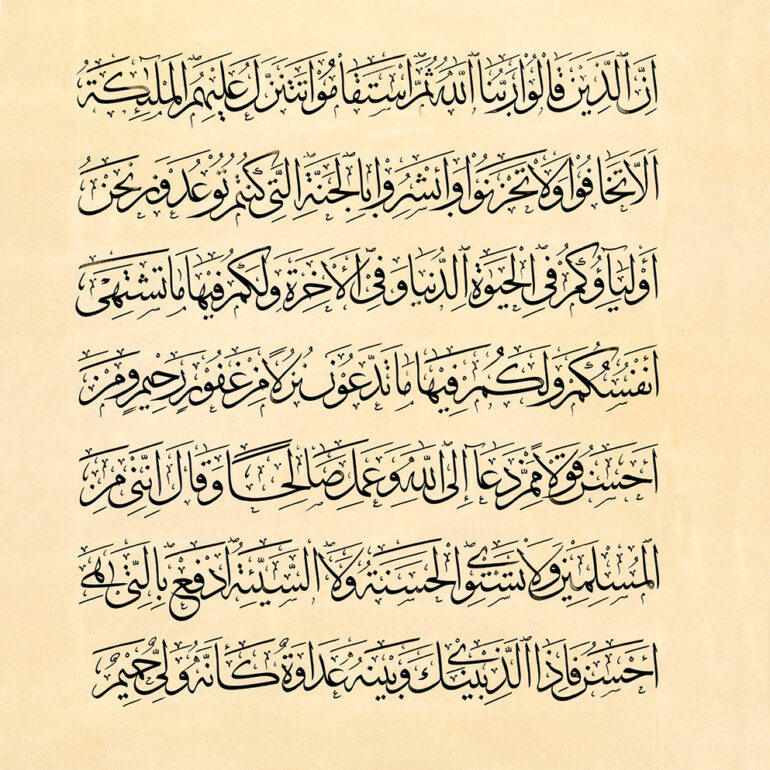 اِنَّ الَّذِينَ قَالُوا رَبُّنَا اللّٰهُ ثُمَّ اسْتَقَامُوا تَتَنَزَّلُ عَلَيْهِمُ الْمَلٰٓئِكَةُ
اَلَّا تَخَافُوا وَلَا تَحْزَنُوا وَاَبْشِرُوا بِالْجَنَّةِ الَّتِي كُنْتُمْ تُوعَدُونَ نَحْنُ
اَوْلِيَآؤُكُمْ فِي الْحَيٰوةِ الدُّنْيَا وَفِي الْاٰخِرَةِ وَلَكُمْ فِيهَا مَا تَشْتَهِٓي
اَنْفُسُكُمْ وَلَكُمْ فِيهَا مَا تَدَّعُونَ نُزُلًا مِنْ غَفُورٍ رَحِيمٍ وَمَنْ
اَحْسَنُ قَوْلًا مِمَّنْ دَعَٓا اِلَى اللّٰهِ وَعَمِلَ صَالِحًا وَقَالَ اِنَّنِي مِنَ
الْمُسْلِمِينَ وَلَا تَسْتَوِي الْحَسَنَةُ وَلَا السَّيِّئَةُ اِدْفَعْ بِالَّتِي هِيَ
اَحْسَنُ فَاِذَا الَّذِي بَيْنَكَ وَبَيْنَهُ عَدَاوَةٌ كَاَنَّهُ وَلِيٌّ حَمِيمٌ